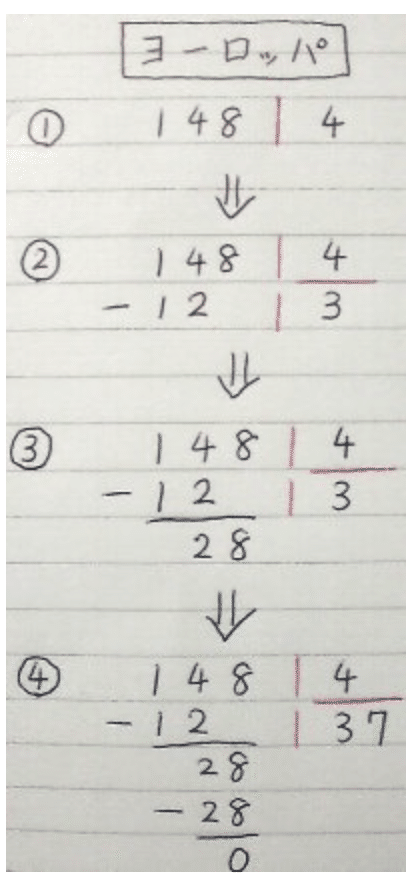 ヨーロッパ
① 148 | 4
⇓
② 148 | 4
- 12 | 3
⇓
③ 148 | 4
- 12 | 3
28
⇓
④ 148 | 4
- 12 | 37
28
- 28
0